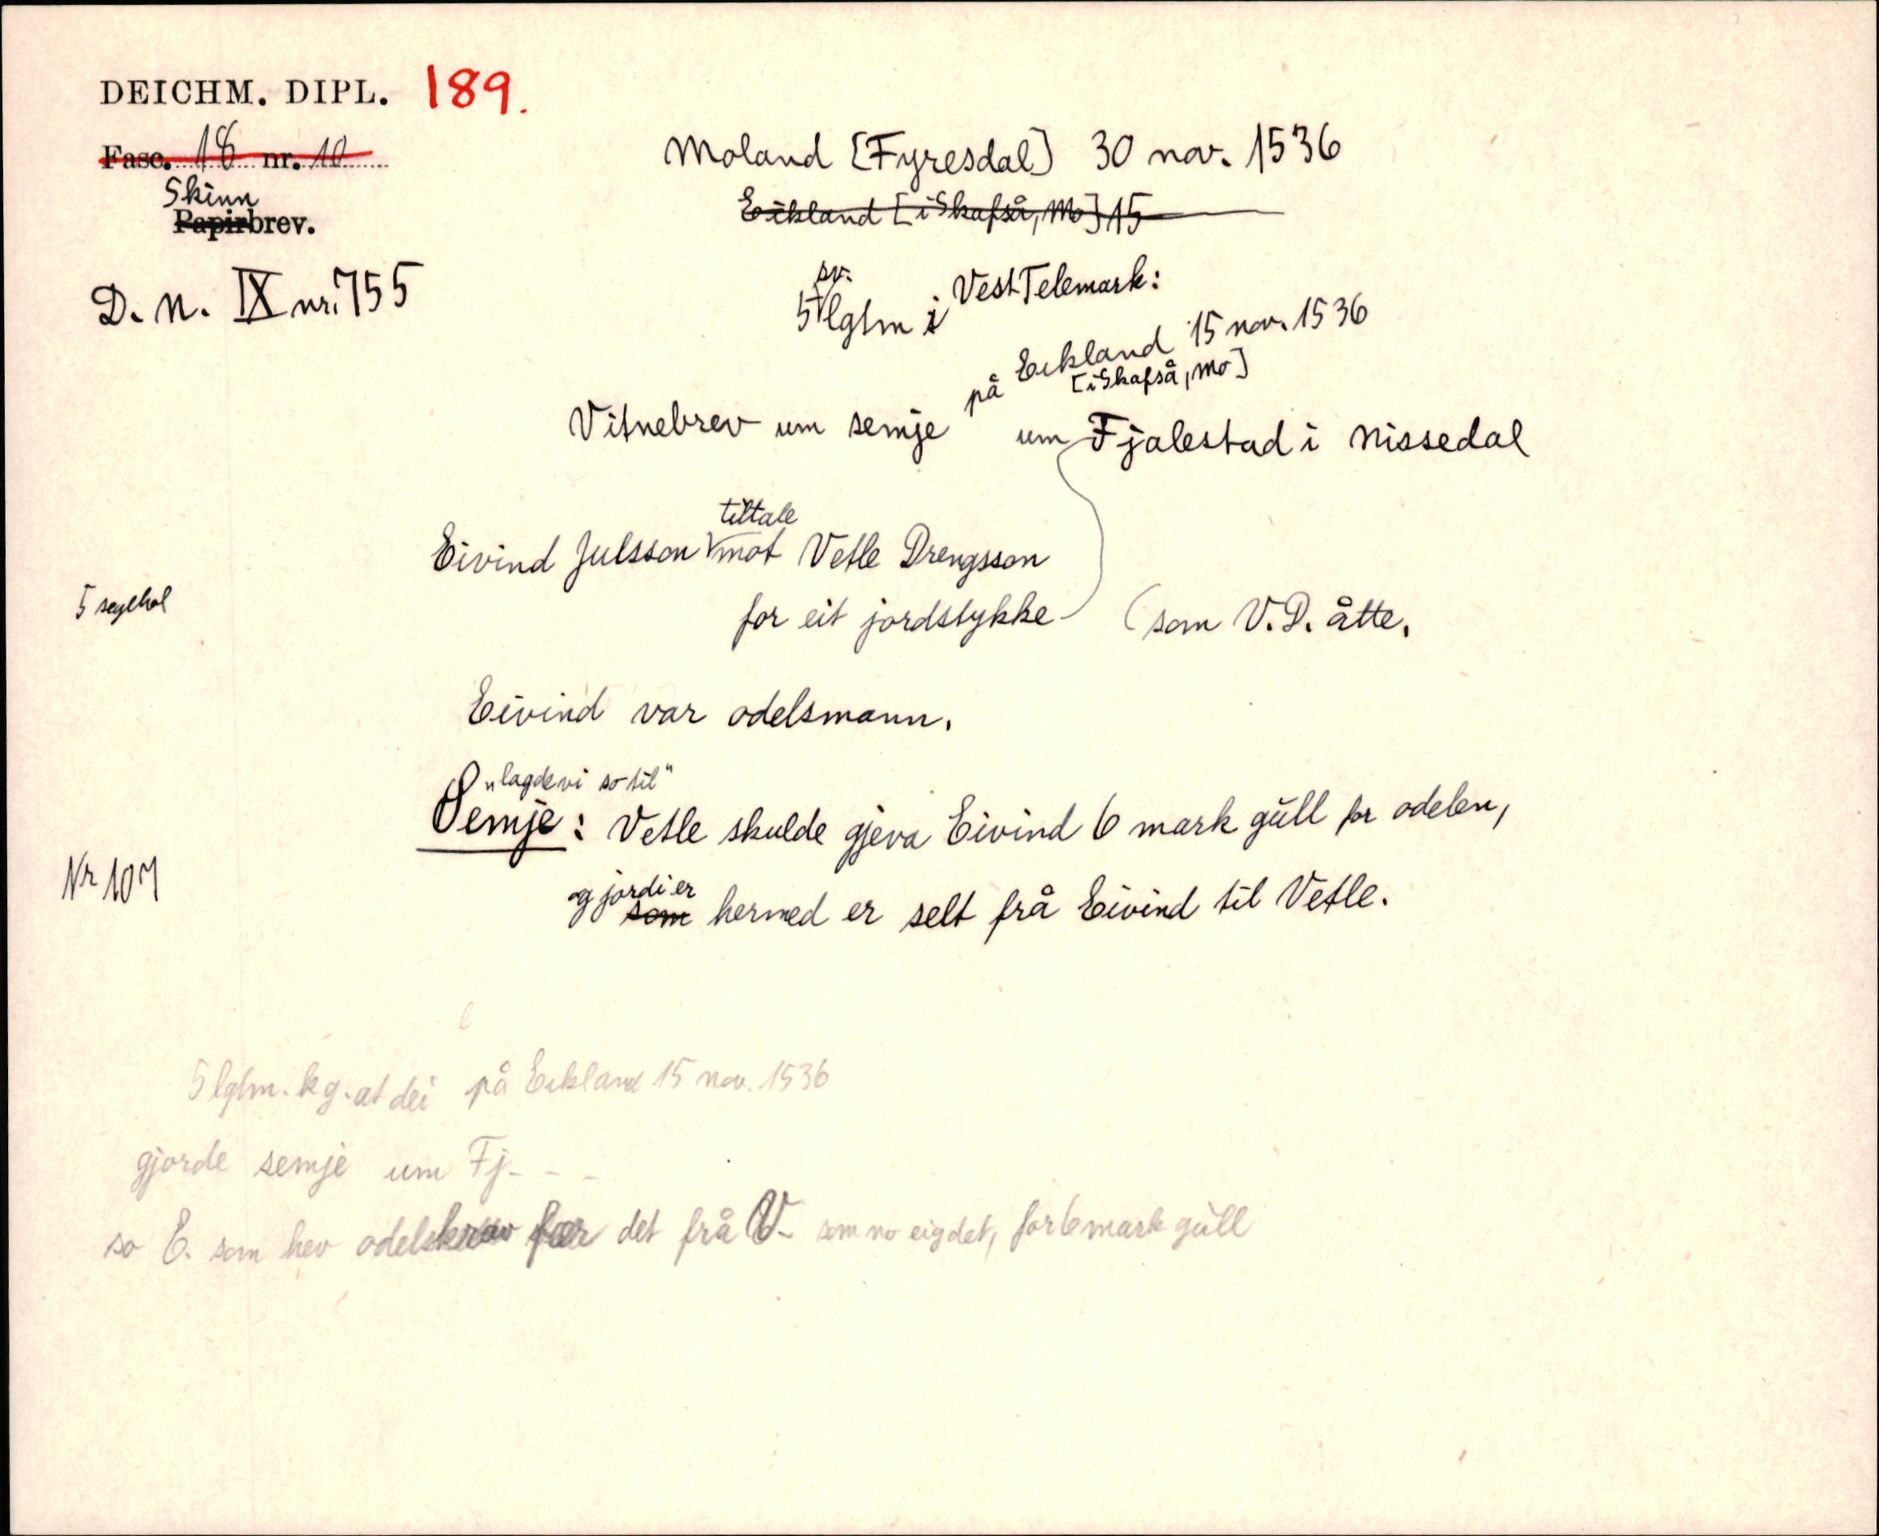 DEICHM. DIPL. 189.
Fasc. 18 nr. 10
Skinn
Papirbrev.
D. N. IX nr. 755
Moland [Fyresdal] 30 nov. 1536
Eikland [i Skafså, Mo] 15
sv.
5 lgtm i Vest Telemark:
på Eikland 15 nov. 1536
[i Skafså, Mo]
Vitnebrev um semje um Fjalestad i Nissedal
tiltale
Eivind Julsson mot Vetle Drengsson
5 seglhol
for eit jordstykke (som V. D. åtte.
Eivind var odelsmann.
„lagde vi so til"
Semje: Vetle skulde gjeva Eivind 6 mark gull for odelen,
Nr 107
og jordi er
som hermed er selt frå Eivind til Vetle.
5 lgtm. kg. at dei på Eikland 15 nov. 1536
gjorde semje um Fj - - -
so E. som hev odelskrav fær det frå V- som no eig det, for 6 mark gull